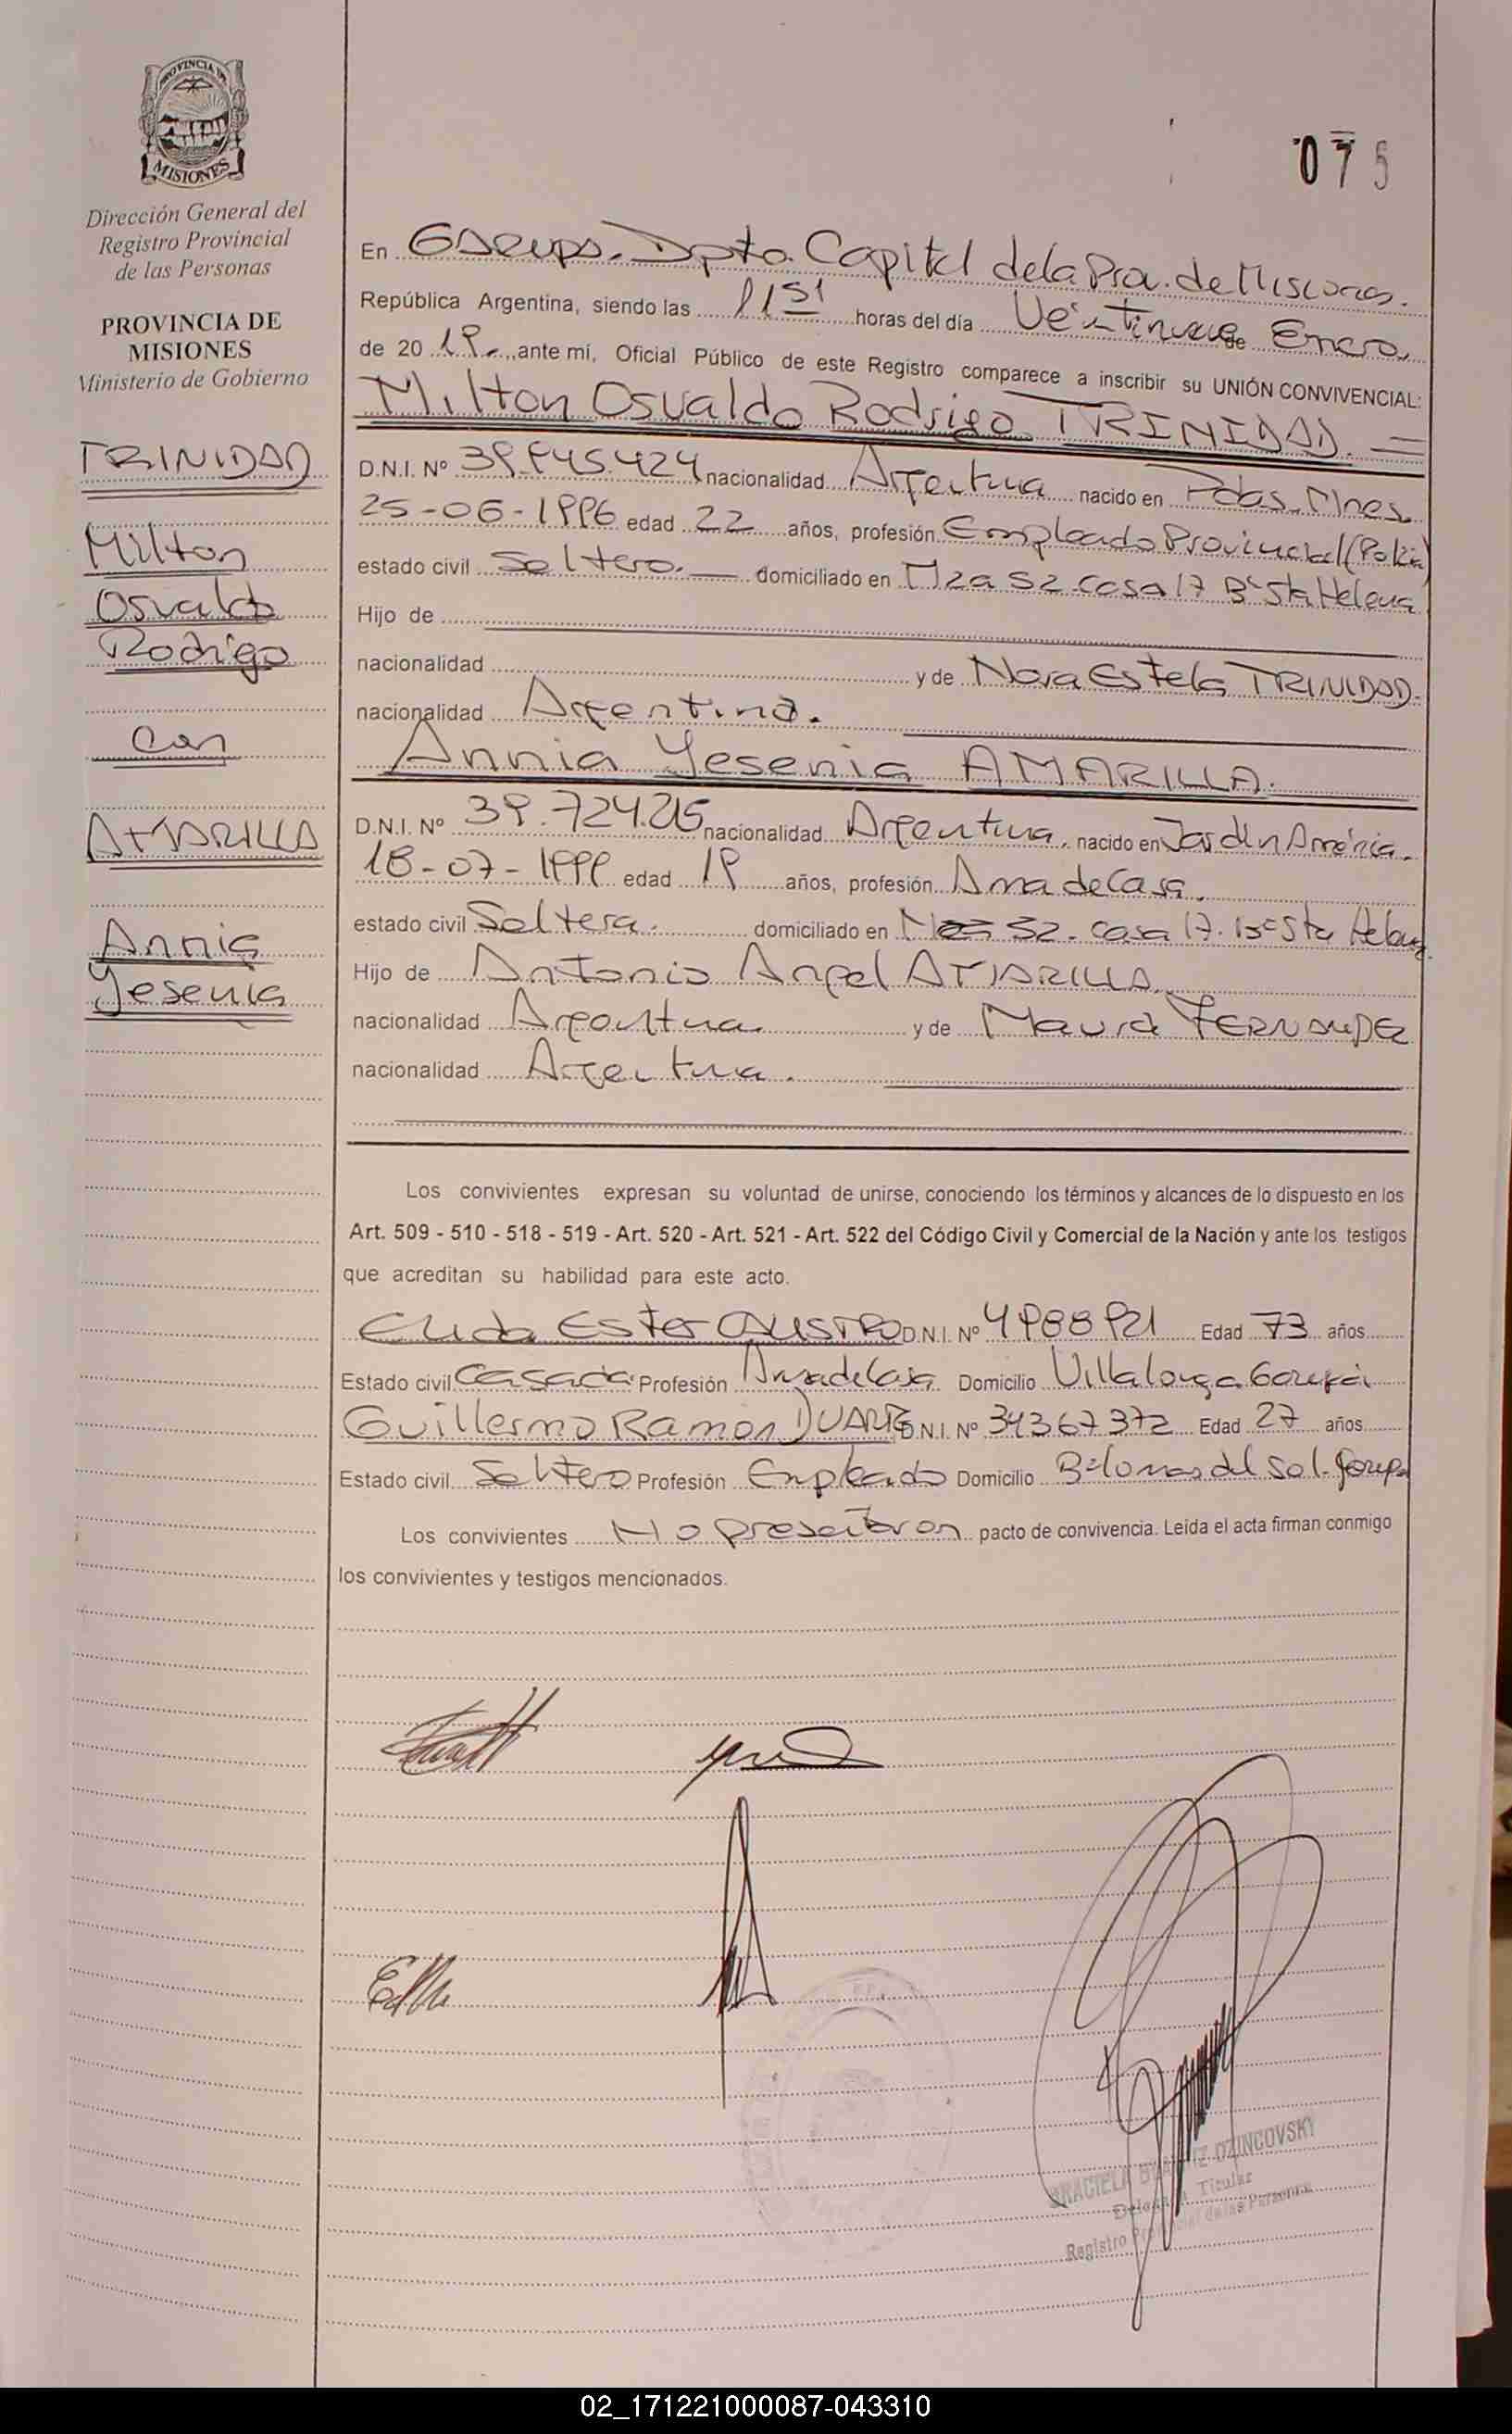 PROVINCIA DE
MISIONES
Dirección General del
Registro Provincial
de las Personas
PROVINCIA DE
MISIONES
Ministerio de Gobierno
TRINIDAD
Milton
Osvaldo
Rodrigo
con
AMARILLA
Annia
Yesenia
075
En Garupá. Dpto. Capital de la Prov. de Misiones.
República Argentina, siendo las 11 51 horas del día Veintinueve de Enero
de 20 19, ante mí, Oficial Público de este Registro comparece a inscribir su UNIÓN CONVIVENCIAL:
Milton Osvaldo Rodrigo TRINIDAD.
D.N.I. Nº 39.945.424 nacionalidad Argentina nacido en Pdas. Mnes.
25-06-1996 edad 22 años, profesión Empleado Provincial (Policia)
estado civil Soltero. domiciliado en Mza 52 casa 17 Bº Sta Helena
Hijo de
nacionalidad y de Nora Estela TRINIDAD.
nacionalidad Argentina.
Annia Yesenia AMARILLA.
D.N.I. Nº 39.724.215 nacionalidad Argentina, nacido en Jardín América.
18-07-1999 edad 19 años, profesión Ama de Casa.
estado civil Soltera. domiciliado en Mza 52 - casa 17. Bº Sta Helena
Hijo de Antonio Angel AMARILLA
nacionalidad Argentina y de Maura FERNANDEZ
nacionalidad Argentina.
Los convivientes expresan su voluntad de unirse, conociendo los términos y alcances de lo dispuesto en los
Art. 509 - 510 - 518 - 519 - Art. 520 - Art. 521 - Art. 522 del Código Civil y Comercial de la Nación y ante los testigos
que acreditan su habilidad para este acto.
Elida Ester D.N.I. Nº 4988921 Edad 73 años
Estado civil Casada Profesión Ama de Casa Domicilio Villalonga Garupá
Guillermo Ramon DUARTE D.N.I. Nº 34367372 Edad 27 años
Estado civil Soltero Profesión Empleado Domicilio Bº lomas del sol - Garupá
Los convivientes No presentaron pacto de convivencia. Leída el acta firman conmigo
los convivientes y testigos mencionados.
GRACIELA BEATRIZ OZINCOVSKY
Delegada Titular
Registro Provincial de las Personas
02_171221000087-043310